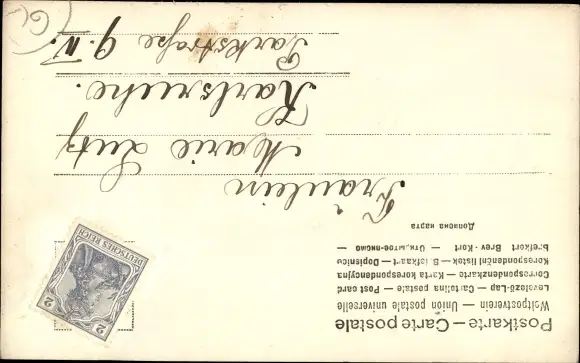 Postkarte — Carte postale
Weltpostverein — Union postale universelle
Levelező-Lap — Cartolina postale — Post card
Correspondenzkarte — Karta korespondencyjna
Korespondenční listek — Briefkaart — Dopisnica
Brefkort Brev-Kort — Открытое-письмо —
Дописна карта
2 2
DEUTSCHES REICH
Fräulein
Marie Lutz
Karlsruhe.
Parkstraße 9. IV.